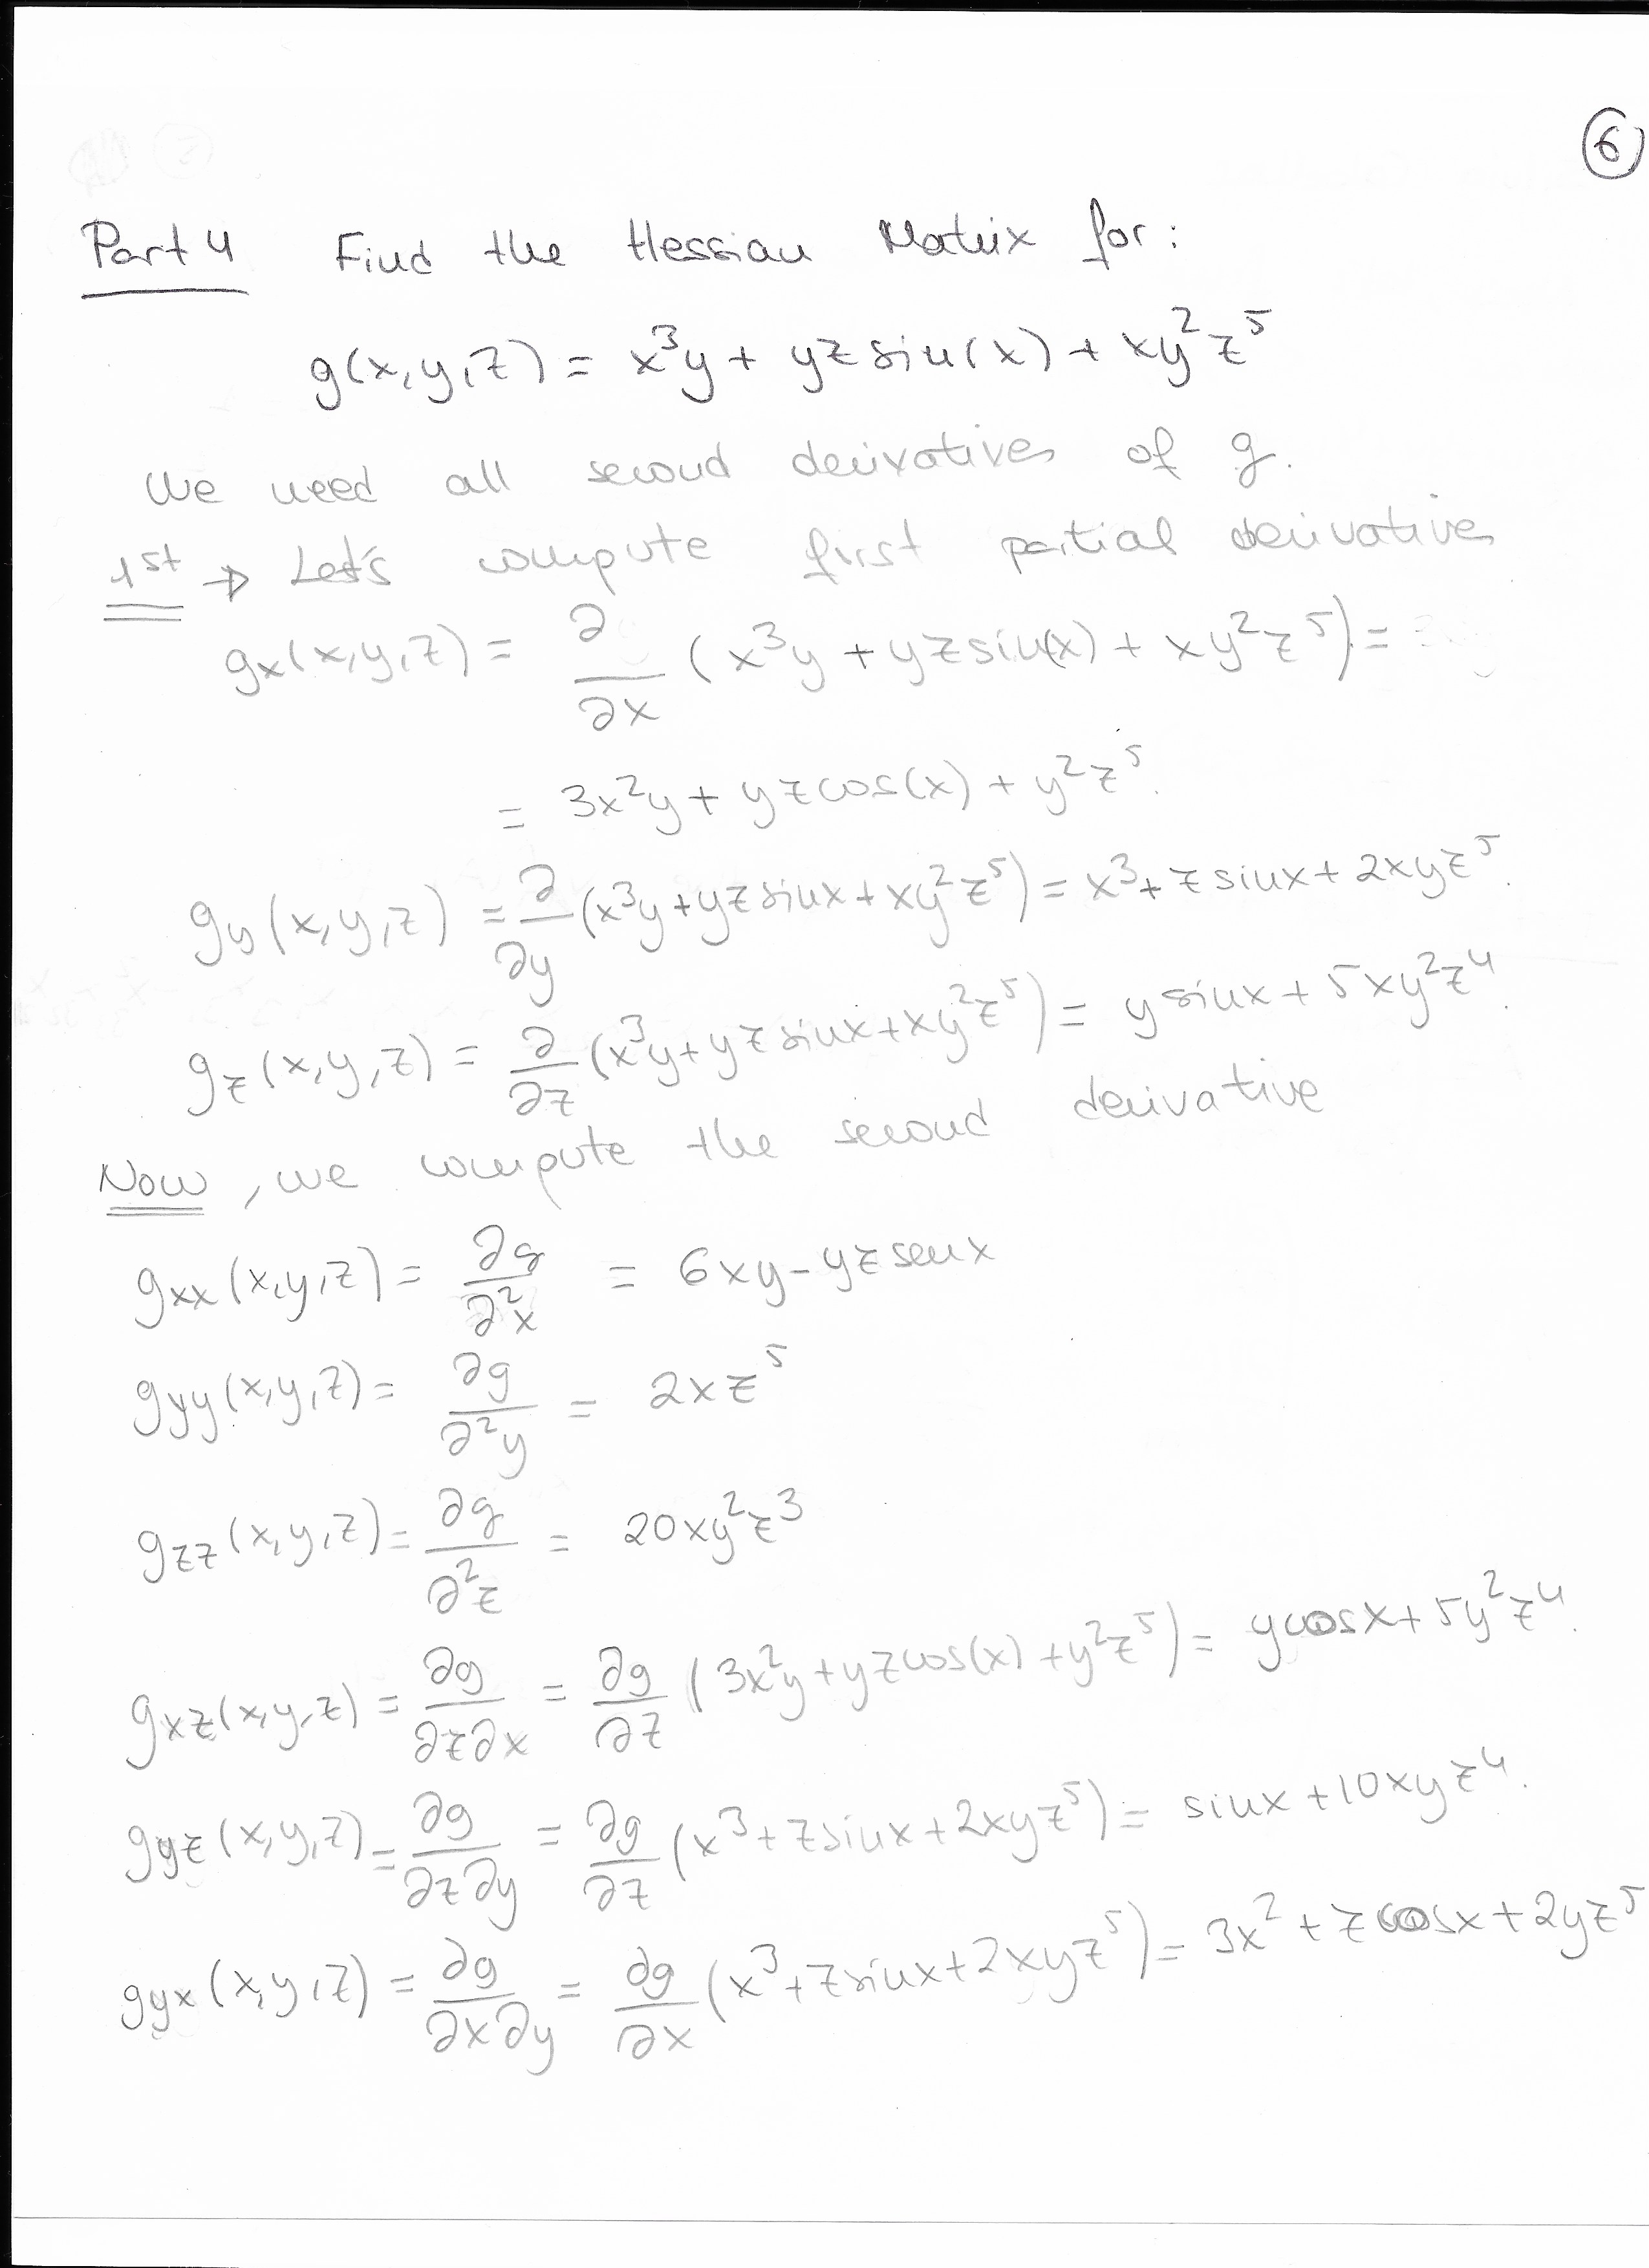 6
Part 4 Find the Hessian Matrix for:
g(x,y,z) = x³y + yz sin(x) + xy²z⁵
We need all second derivatives of g.
1st → Let's compute first partial derivatives
gx(x,y,z) = ∂/∂x (x³y + yz sin(x) + xy²z⁵) =
= 3x²y + yz cos(x) + y²z⁵.
gy(x,y,z) = ∂/∂y (x³y + yz sinx + xy²z⁵) = x³ + z sinx + 2xyz⁵.
gz(x,y,z) = ∂/∂z (x³y + yz sinx + xy²z⁵) = y sinx + 5xy²z⁴.
Now, we compute the second derivative
gxx(x,y,z) = ∂g/∂²x = 6xy - yz senx
gyy(x,y,z) = ∂g/∂²y = 2xz⁵
gzz(x,y,z) = ∂g/∂²z = 20xy²z³
gxz(x,y,z) = ∂g/∂z∂x = ∂g/∂z (3x²y + yz cos(x) + y²z⁵) = y cosx + 5y²z⁴.
gyz(x,y,z) = ∂g/∂z∂y = ∂g/∂z (x³ + z sinx + 2xyz⁵) = sinx + 10xyz⁴.
gyx(x,y,z) = ∂g/∂x∂y = ∂g/∂x (x³ + z sinx + 2xyz⁵) = 3x² + z cosx + 2yz⁵